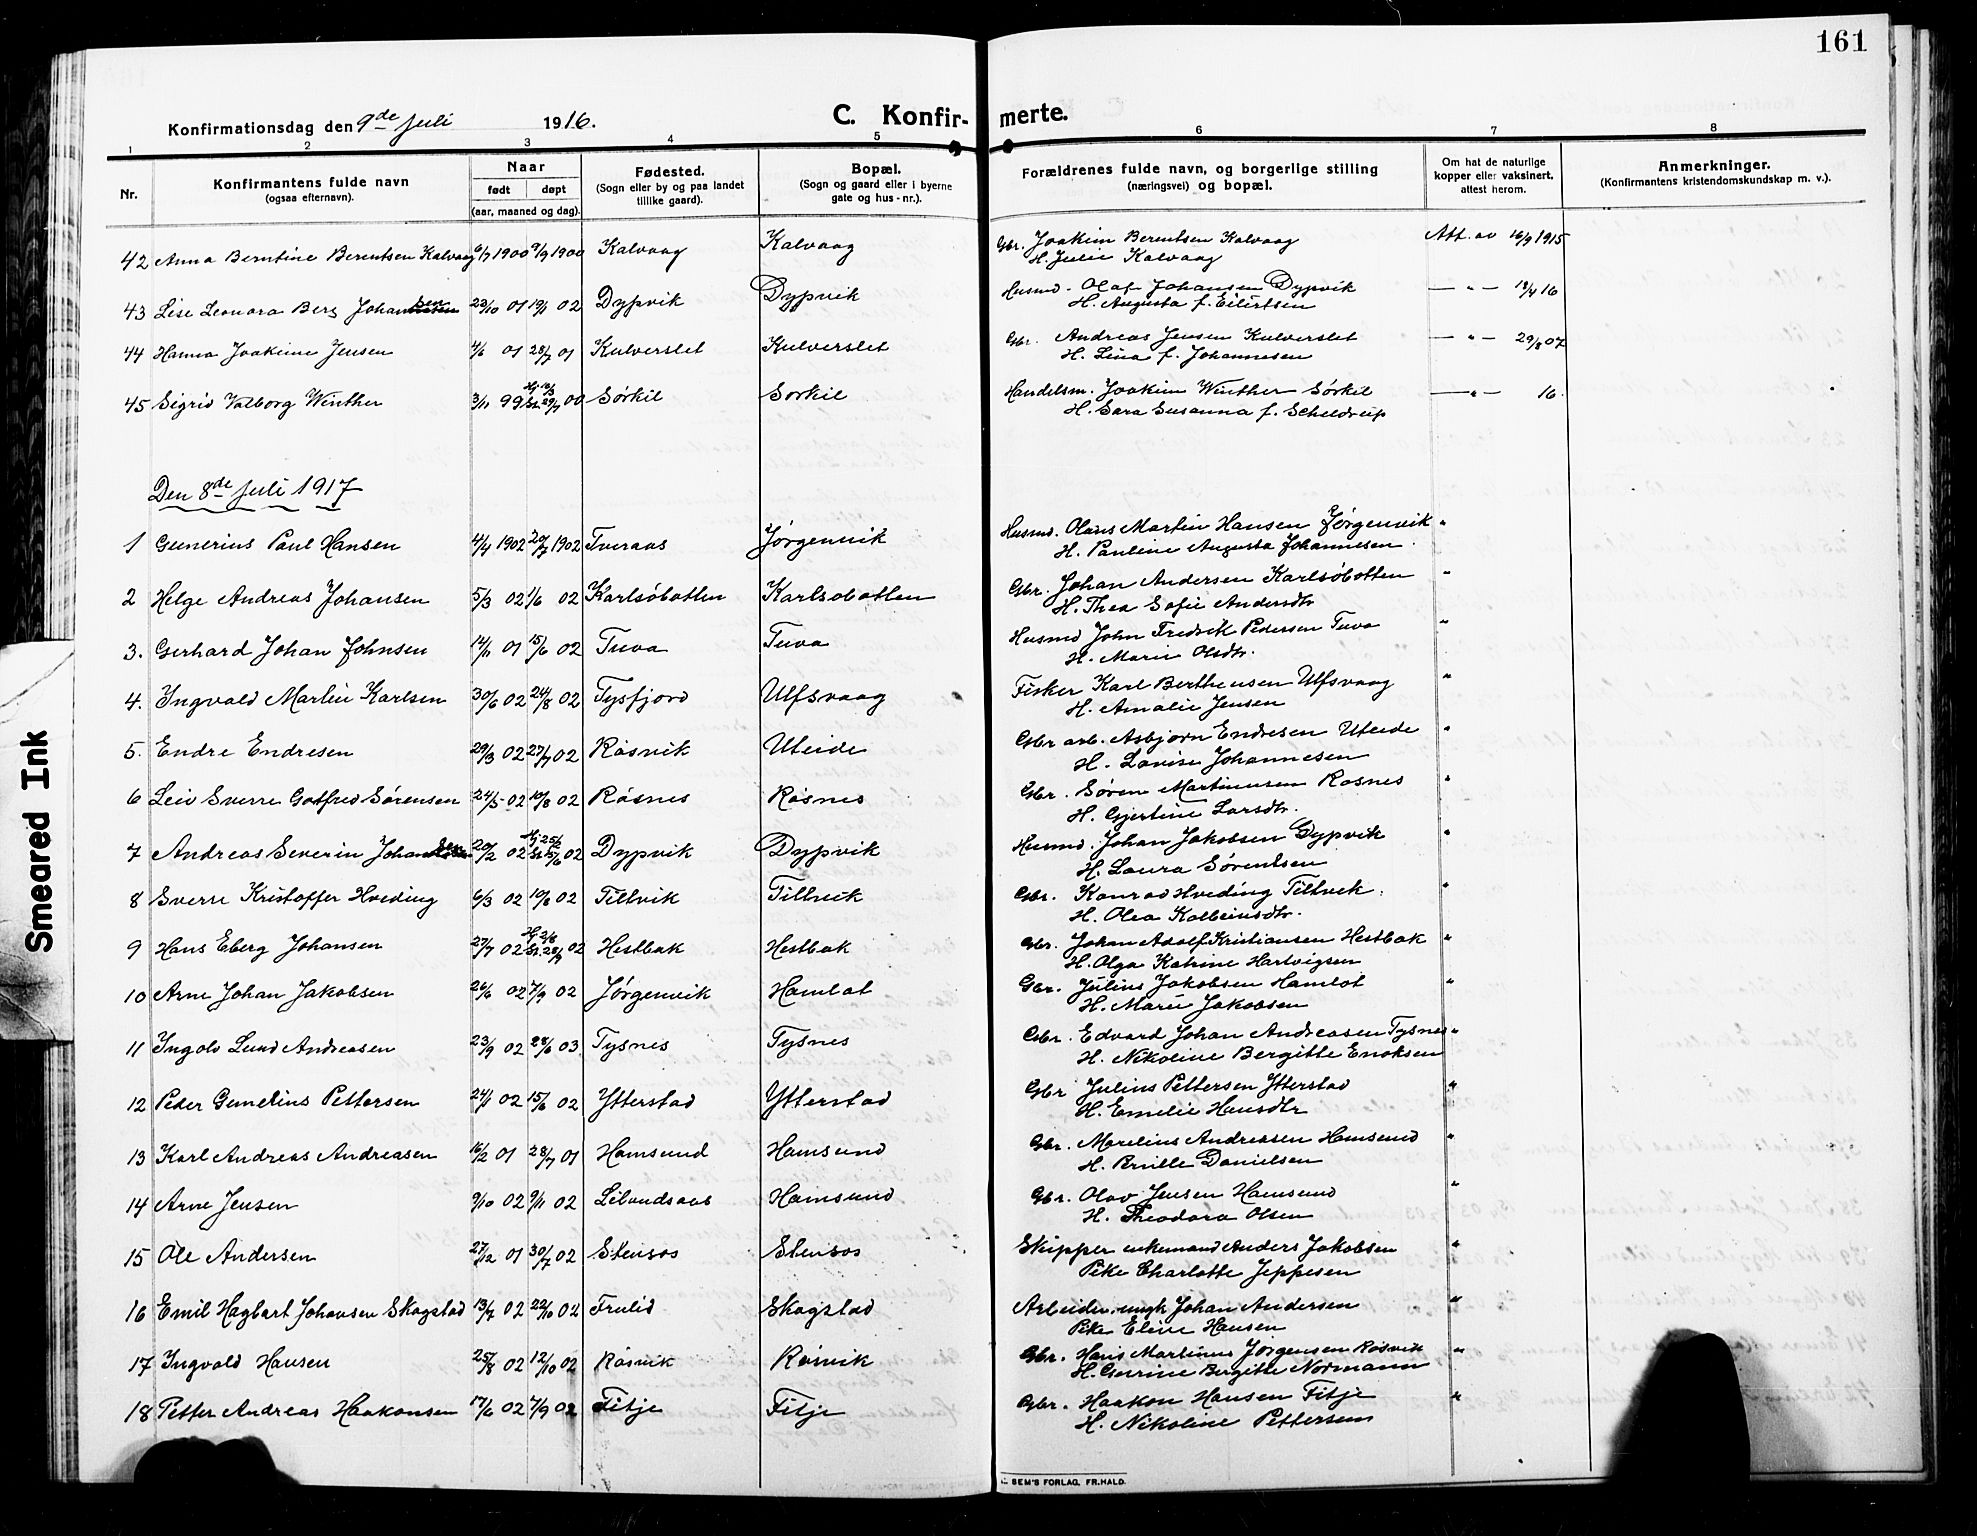 161
Konfirmationsdag den 9de Juli 1916.
C. Konfir- merte.
1 2 3 4 5 6 7 8
Nr. Konfirmantens fulde navn (ogsaa efternavn). Naar født døpt (aar, maaned og dag). Fødested. (Sogn eller by og paa landet tillike gaard). Bopæl. (Sogn og gaard eller i byerne gate og hus-nr.). Forældrenes fulde navn, og borgerlige stilling (næringsvei) og bopæl. Om hat de naturlige kopper eller vaksinert, attest herom. Anmerkninger. (Konfirmantens kristendomskundskap m. v.).
42 Anna Berntine Berentsen Kalvaag 6/7 1900 9/9 1900 Kalvaag Kalvaag Gbr. Joakim Berentsen Kalvaag Att. av 16/9 1915
H. Julie Kalvaag
43 Lise Leonora Berg Johansen 23/10 01 19/1 02 Dypvik Dypvik Husmd. Olaf Johansen Dypvik — " — 18/4 16
H. Augusta f. Eilertsen
44 Hanna Joakime Jensen 4/6 01 28/7 01 Kulverslet Kulverslet Gbr. Andreas Jensen Kulverslet — " — 29/8 07
H. Lina f. Johannesen
45 Sigrid Valborg Winther 3/11 99 Hj. 18/3 St. 29/7 00 Sørkil Sørkil Handelsm. Joakim Winther Sørkil — " — 16.
H. Sara Susanna f. Scheldrup
Den 8de Juli 1917
1 Gunerius Paul Hansen 4/4 1902 20/7 1902 Tveraas Jørgenvik Husmd. Olaus Martin Hansen Jørgenvik "
H. Pauline Augusta Johannesen.
2 Helge Andreas Johansen 5/3 02 1/6 02 Karlsøbotten Karlsobotten Gbr. Johan Andersen Karlsøbotten "
H. Thea Sofie Andersdtr
3. Gerhard Johan Johnsen 14/11 01 15/6 02 Tuva Tuva Husmd John Fredrik Pedersen Tuva "
H. Marie Olsdtr.
4. Ingvald Martin Karlsen 30/6 02 24/8 02 Tysfjord Ulfsvaag Fisker Karl Berthensen Ulfsvaag "
H. Amalie Jensen
5. Endre Endresen 29/3 02 27/7 02 Røsvik Uteide Gbr arb. Asbjørn Endresen Uteide "
H. Lovise Johannesen
6 Leiv Sverre Gotfred Sørensen 24/5 02 10/8 02 Røsnes Røsnes Gbr. Søren Martinusen Røsnes "
H. Gjertine Larsdtr.
7 Andreas Severin Johansen 20/2 02 Dypvik Dypvik Husmd. Johan Jakobsen Dypvik "
H. Laura Sørentsen
8 Sverre Kristoffer Hveding 6/3 02 10/8 02 Tiltvik Tiltvik Gbr. Konrad Hveding Tiltvik. "
H. Olea Kolbeinsdtr.
9 Hans Eberg Johansen 27/7 02 Hj. 2/8 St. 28/9 02 Hestbak Hestbak Gbr. Johan Adolf Kristiansen Hestbak "
H. Olga Katrine Hartvigsen
10 Arne Johan Jakobsen 26/6 02 7/9 02 Jørgenvik Hamlot Gbr. Julius Jakobsen Hamlot "
H. Marie Jakobsen
11 Ingolv Lund Andreasen 23/9 02 28/6 03. Tysnes Tysnes Gbr. Edvard Johan Andreasen Tysnes "
H. Nikoline Bergitte Enoksen
12 Peder Gunelius Pettersen 24/1 02 15/6 02 Ytterstad Ytterstad Gbr Julius Pettersen Ytterstad "
H. Emelie Hansdtr
13 Karl Andreas Andreasen 16/2 01 28/7 01 Hamsund Hamsund Gbr. Marelius Andreasen Hamsund "
H. Danielsen
14 Arne Jensen 9/10 02 9/11 02 Hamsund Gbr. Olav Jensen Hamsund "
H. Theodora Olsen
15 Ole Andersen 27/12 01 30/7 02 Stensos Stensos Skipper enkemand Anders Jakobsen "
Pike Charlotte Jeppesen
16 Emil Hagbart Johansen Skogstad 13/7 02 22/10 02 Frulid Skogstad Arbeider, ungk Johan Andersen "
Pike Eline Hansen
17 Ingvald Hansen 25/8 02 12/10 02 Røsvik Røsvik Gbr. Hans Martinus Jørgensen Røsvik "
H. Gurine Bergitte Normann
18 Petter Andreas Haakonsen 17/6 02 7/9 02 Fitje Fitje Gbr. Haakon Hansen Fitje "
H. Nikoline Pettersen
SEM'S FORLAG, FR. HALD.
Smeared Ink